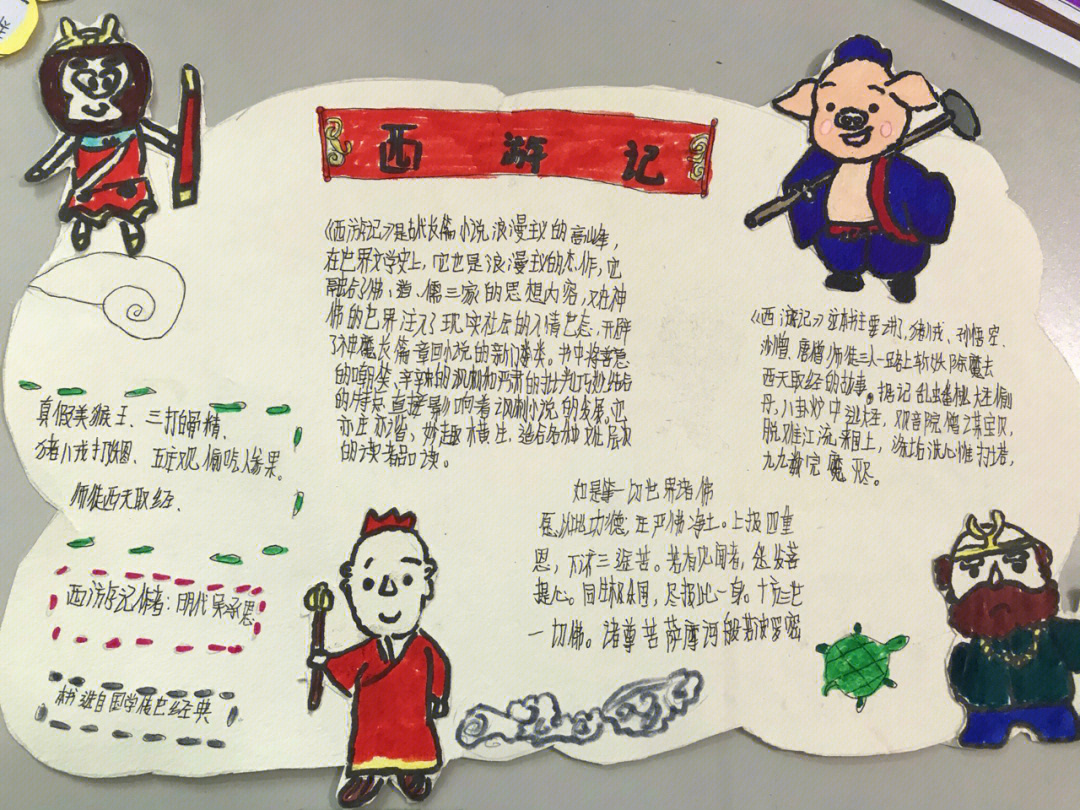 西游记
《西游记》是古代长篇小说浪漫主义的高山峰，
在世界文学史上，它也是浪漫主义的杰作，它
融合了佛、道、儒三家的思想内容，又在神
佛的世界注入了现实社会的人情世态，开辟
了神魔长篇章回小说的新门类。书中将善意
的嘲笑、辛辣的讽刺和严肃的批判巧妙结合
的特点直接影响着讽刺小说的发展。它
亦庄亦谐，妙趣横生，适合各种文化层次
的读者品读。
《西游记》这本书主要讲了，猪八戒、孙悟空、
沙僧、唐僧师徒三人一路上斩妖除魔去
西天取经的故事。
丹，八卦炉中逃大圣，观音院僧谋宝贝，
脱难江流来国上，涤垢洗心惟扫塔，
九九数完魔灭尽。
真假美猴王、三打白骨精、
猪八戒、五庄观偷吃人参果。
师徒西天取经、
西游记作者：明代吴承恩
本书选自国学传世经典
如是等一切世界诸佛
愿以此功德，庄严佛净土。上报四重
恩，下济三涂苦。若有见闻者，悉发菩
提心。同生极乐国，尽报此一身。十方三世
一切佛。诸尊菩萨摩诃般若波罗密